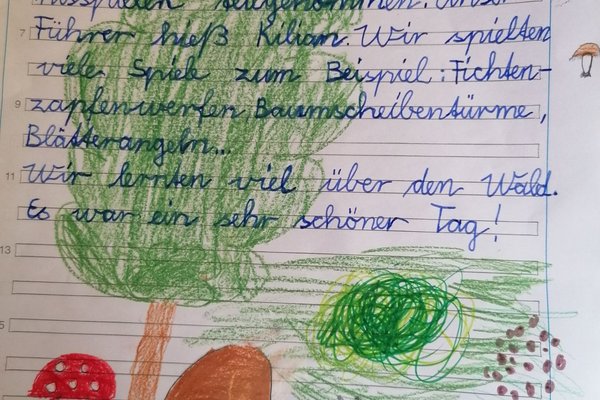 teilgenommen. Unser
7 Führer hieß Kilian. Wir spielten
viele Spiele zum Beispiel: Fichten-
9 zapfenwerfen, Baumscheibentürme,
Blätterangeln...
11 Wir lernten viel über den Wald.
Es war ein sehr schöner Tag!
13